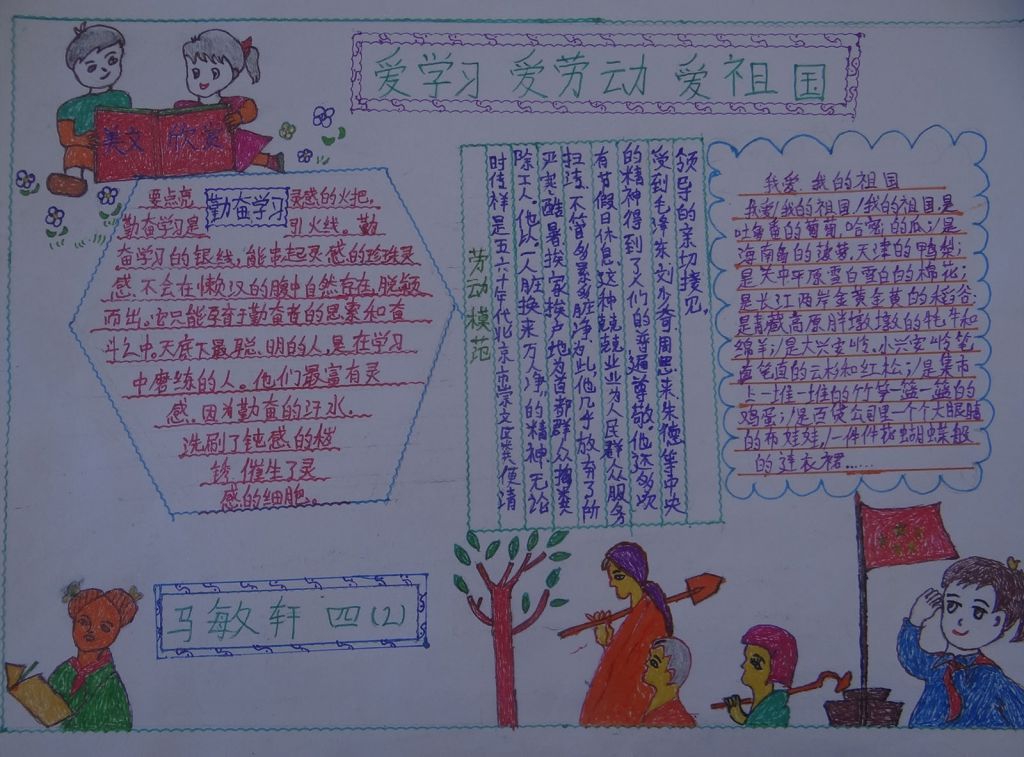 爱学习 爱劳动 爱祖国
美文 欣赏
勤奋学习
要点亮灵感的火把,
勤奋学习是引火线。勤
奋学习的银线,能串起灵感的珍珠灵
感,不会在懒汉的脑中自然存在,脱颖
而出。它只能孕育于勤奋者的思索和奋
斗之中。天底下最聪明的人,是在学习
中磨练的人。他们最富有灵
感,因为勤奋的汗水。
洗刷了钝感的锈
锈,催生了灵
感的细胞。
劳动模范
时传祥是五六十年代北京崇文区粪便清
除工人。他以“一人脏换来万人净”的精神无论
严寒酷暑挨家挨户地为首都群众掏粪
扫污,不管多累多脏,为此,他几乎放弃了所
有节假日休息,这种兢兢业业为人民群众服务
的精神得到了人们的普遍尊敬。他还多次
受到毛泽东、刘少奇、周恩来、朱德等中央
领导的亲切接见。
我爱我的祖国
我爱我的祖国/我的祖国是
吐鲁番的葡萄,哈密的瓜;/是
海南岛的菠萝,天津的鸭梨;
是关中平原雪白雪白的棉花;
是长江两岸金黄金黄的稻谷;
是青藏高原胖墩墩的牦牛和
绵羊;/是大兴安岭、小兴安岭笔
直笔直的云杉和红松;/是集市
上一堆一堆的竹笋一篮一篮的
鸡蛋;/是百货公司里一个个大眼睛
的布娃娃,/一件件花蝴蝶般
的连衣裙……
马敏轩 四(2)